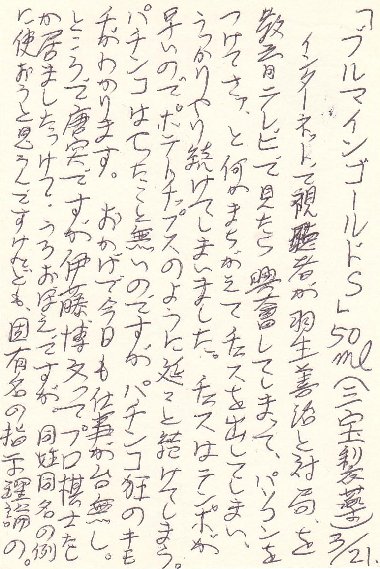 「ブルマインゴールドS」50ml(三宝製薬)3/21.
インターネットで視聴者が羽生善治と対局、を
教育テレビで見たら興奮してしまって、パソコンを
つけてさァ、と何のまちがえてチェスを出してしまい、
うっかりやり続けてしまいました。チェスはテンポが
早いのでポテトチップスのように延々と続けてしまう。
パチンコはやったこと無いのですがパチンコ狂のキモ
チがわかります。 おかげで今日も仕事が台無し。
ところで唐突ですが伊藤博文ってプロ棋士た
か居ましたっけて。うろおぼえですが 同姓同名の例
に使おうと思うんですけれども 固有名の指示理論の。